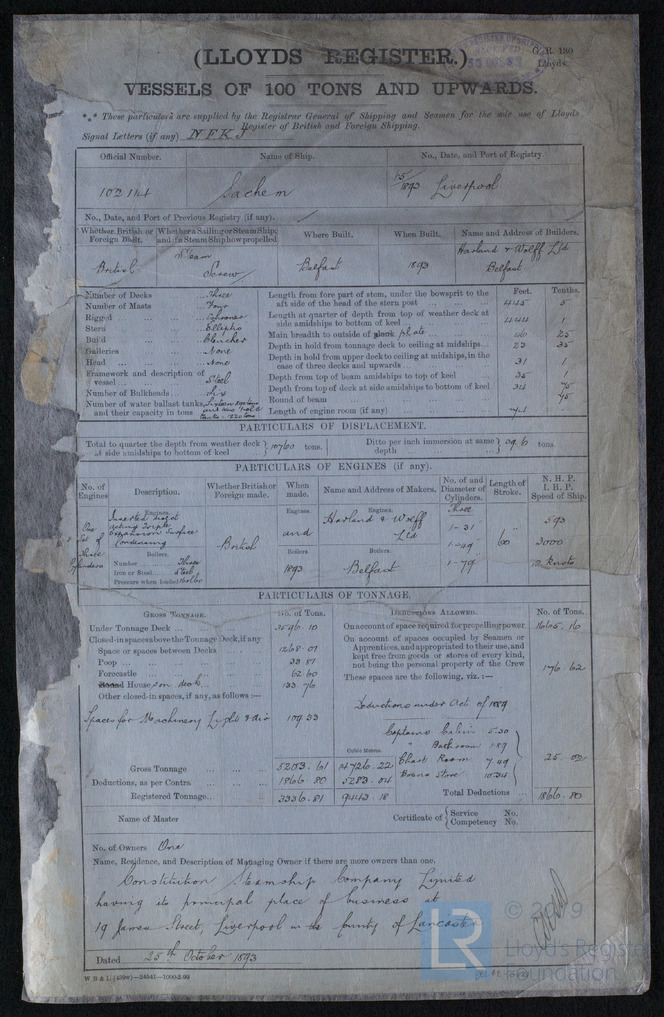 (LLOYDS REGISTER.)
G.R. 130
Lloyds.
VESSELS OF 100 TONS AND UPWARDS.
*** These particulars are supplied by the Registrar General of Shipping and Seamen for the sole use of Lloyds
Register of British and Foreign Shipping.
Signal Letters (if any)
Official Number. Name of Ship. No., Date, and Port of Registry.
102114 Sachem 15/1893 Liverpool
No., Date, and Port of Previous Registry (if any).
Whether British or Foreign Built. Whether a Sailing or Steam Ship; and if a Steam Ship how propelled Where Built. When Built. Name and Address of Builders.
British Steam Screw Belfast 1893 Harland & Wolff Ltd Belfast
Number of Decks Three
Number of Masts Four
Rigged Schooner
Stern Elliptic
Build Clencher
Galleries None
Head None
Framework and description of vessel Steel
Number of Bulkheads Six
Number of water ballast tanks, and their capacity in tons
Feet. Tenths.
Length from fore part of stem, under the bowsprit to the aft side of the head of the stern post 445 5
Length at quarter of depth from top of weather deck at side amidships to bottom of keel 444 1
Main breadth to outside of plank plate 46 25
Depth in hold from tonnage deck to ceiling at midships 23 35
Depth in hold from upper deck to ceiling at midships, in the case of three decks and upwards 31 1
Depth from top of beam amidships to top of keel 35 1
Depth from top of deck at side amidships to bottom of keel 34 75
Round of beam 95
Length of engine room (if any)
PARTICULARS OF DISPLACEMENT.
Total to quarter the depth from weather deck at side amidships to bottom of keel 10760 tons. Ditto per inch immersion at same depth 39.6 tons.
PARTICULARS OF ENGINES (if any).
No. of Engines Description. Whether British or Foreign made. When made. Name and Address of Makers. No. of and Diameter of Cylinders. Length of Stroke. N. H. P. I. H. P. Speed of Ship.
Engines. Engines. Engines. Three
One Set of Three Cylinders Inverted direct acting Triple expansion Surface Condensing British and Harland & Wolff Ltd 1-31 1-49 1-79 60 593 3000
Boilers. Boilers Boilers.
Number Three 1893 Belfast
Iron or Steel Steel
Pressure when loaded
PARTICULARS OF TONNAGE.
GROSS TONNAGE. No. of Tons.
Under Tonnage Deck 3596.10
Closed-in spaces above the Tonnage Deck, if any
Space or spaces between Decks 1268.07
Poop 33 81
Forecastle 62 60
Round Houses on deck 133 70
Other closed-in spaces, if any, as follows :—
Spaces for Machinery Light & Air 109 33
Cubic Metres.
Gross Tonnage 5203.61 14726.22
Deductions, as per Contra 1866 80 5283.04
Registered Tonnage 3336.81 9443.18
DEDUCTIONS ALLOWED. No. of Tons.
On account of space required for propelling power 1665.16
On account of spaces occupied by Seamen or Apprentices, and appropriated to their use, and kept free from goods or stores of every kind, not being the personal property of the Crew 176.62
These spaces are the following, viz. :—
Deductions under Act of 1889
Captains Cabin 5.30
" Bathroom 1.89
Chart Room 7.49
Bosns Store 10.34
25.02
Total Deductions 1866.80
Name of Master Certificate of { Service No. Competency No.
No. of Owners One
Name, Residence, and Description of Managing Owner if there are more owners than one,
Constitution Steamship Company Limited
having its principal place of business at
19 James Street, Liverpool in the County of Lancaster
Dated 25th October 1893
© 2019
LR
Lloyd's Register
Foundation